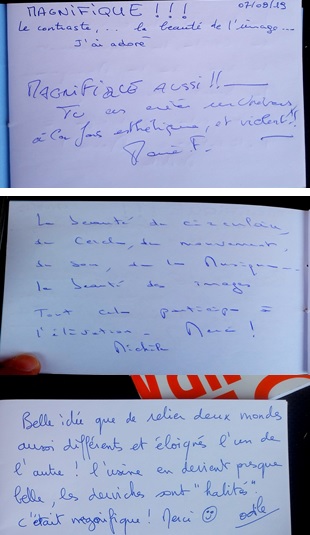 MAGNIFIQUE !!!
07/09/19
Le contraste... la beauté de l'image...
J'ai adoré
MAGNIFIQUE AUSSI !!
Tu as
à la fois esthétique, et violent !!
F.
La beauté du circulaire,
du Cercle, du mouvement,
du son, de la Musique...
la beauté des images
Tout cela participe à
l'élévation - Merci !
Michèle
Belle idée que de relier deux mondes
aussi différents et éloignés l'un de
l'autre ! l'usine en devient presque
belle, les derviches sont "habités".
c'était magnifique ! Merci ☺ Odile